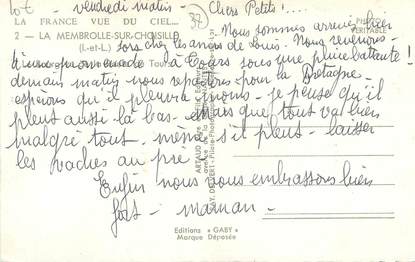 Lot - vendredi matin - Chers Petits !...
LA FRANCE VUE DU CIEL... 37
Nous sommes arrivés hier
2 - LA MEMBROLLE-SUR-CHOISILLE
(I.-et-L.)
soirs chez les amis de Louis. Nous revenons
d'une promenade à Tours sous une pluie battante !
demain matin nous repartons pour la Bretagne
espérons qu'il pleuvra moins - je pense qu'il
pleut aussi là bas - mais que tout va bien
malgré tout - même s'il pleut - laisser
les vaches au pré
Enfin nous vous embrassons bien
fort - maman -
Editions « GABY »
Marque Déposée
VÉRITABLE